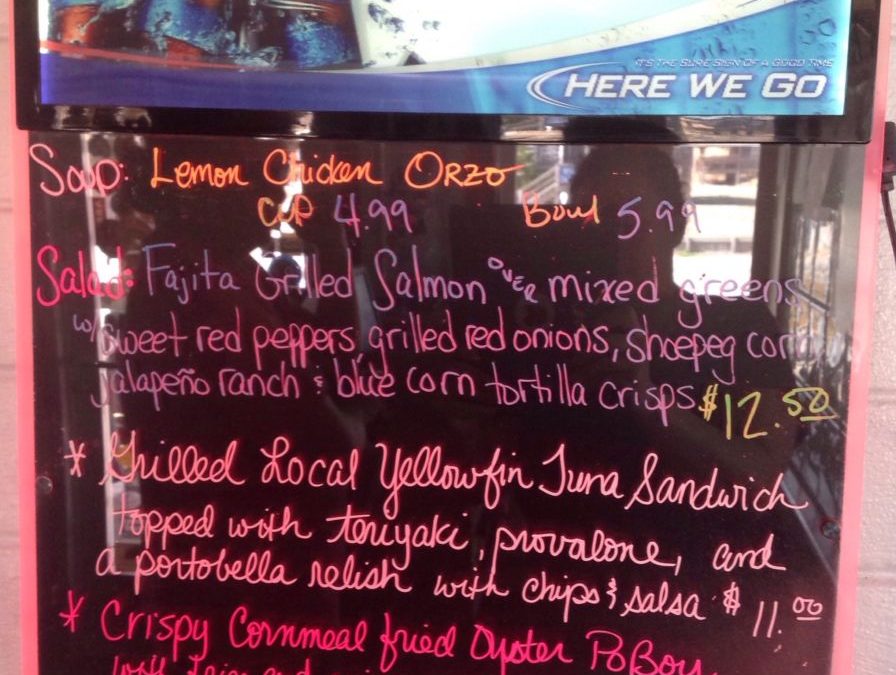 IT'S THE SURE SIGN OF A GOOD TIME
HERE WE GO
Soup: Lemon Chicken ORZO
CUP 4.99 Bowl 5.99
Salad: Fajita Grilled Salmon OVER mixed greens
w/ sweet red peppers, grilled red onions, shoepeg corn
jalapeño ranch & blue corn tortilla crisps $12.50
* Grilled Local Yellowfin Tuna Sandwich
topped with teriyaki, provalone, and
a portobella relish with chips & salsa $11.00
* Crispy Cornmeal fried Oyster PoBoy